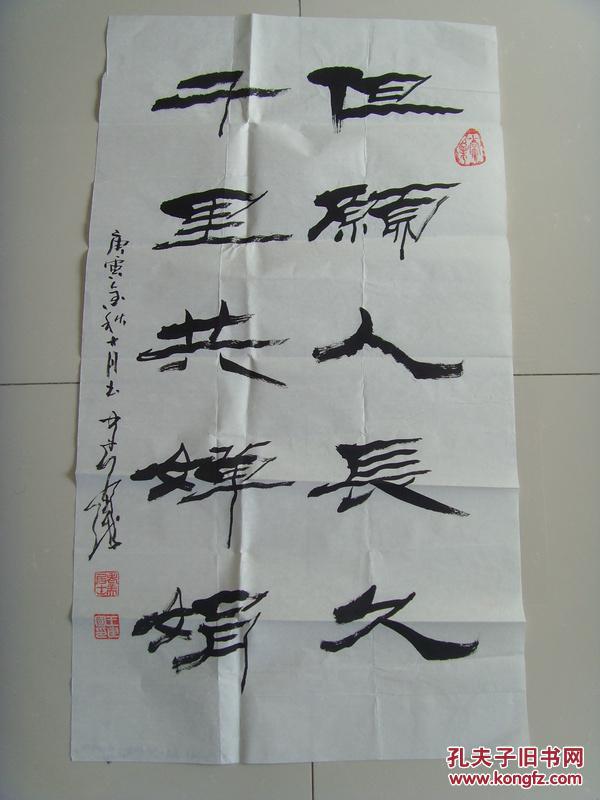 但願人長久
千里共嬋娟
庚寅金秋十月書
孔夫子旧书网
www.kongfz.com